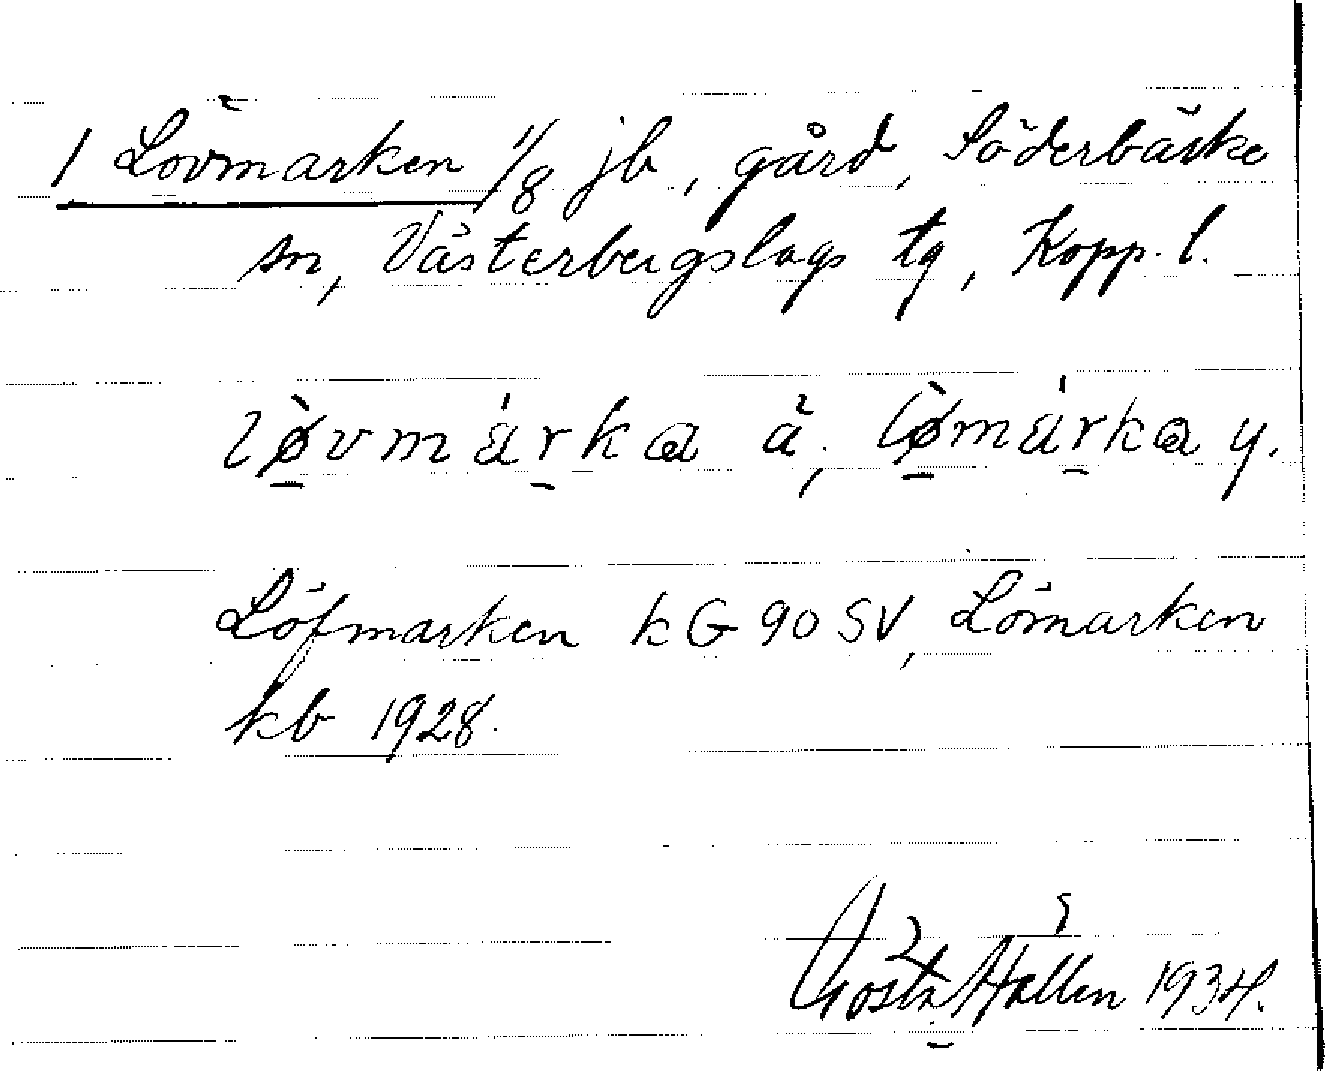 1 Lövmarken 1/8 jb, gård, Söderbärke
sn, Västerbergslags tg, Kopp. l.
lø̀vmárka ä, lø̀márka y.
Löfmarken kG 90 SV, Lömarken
kb 1928.
Gösta Hallen 1934.